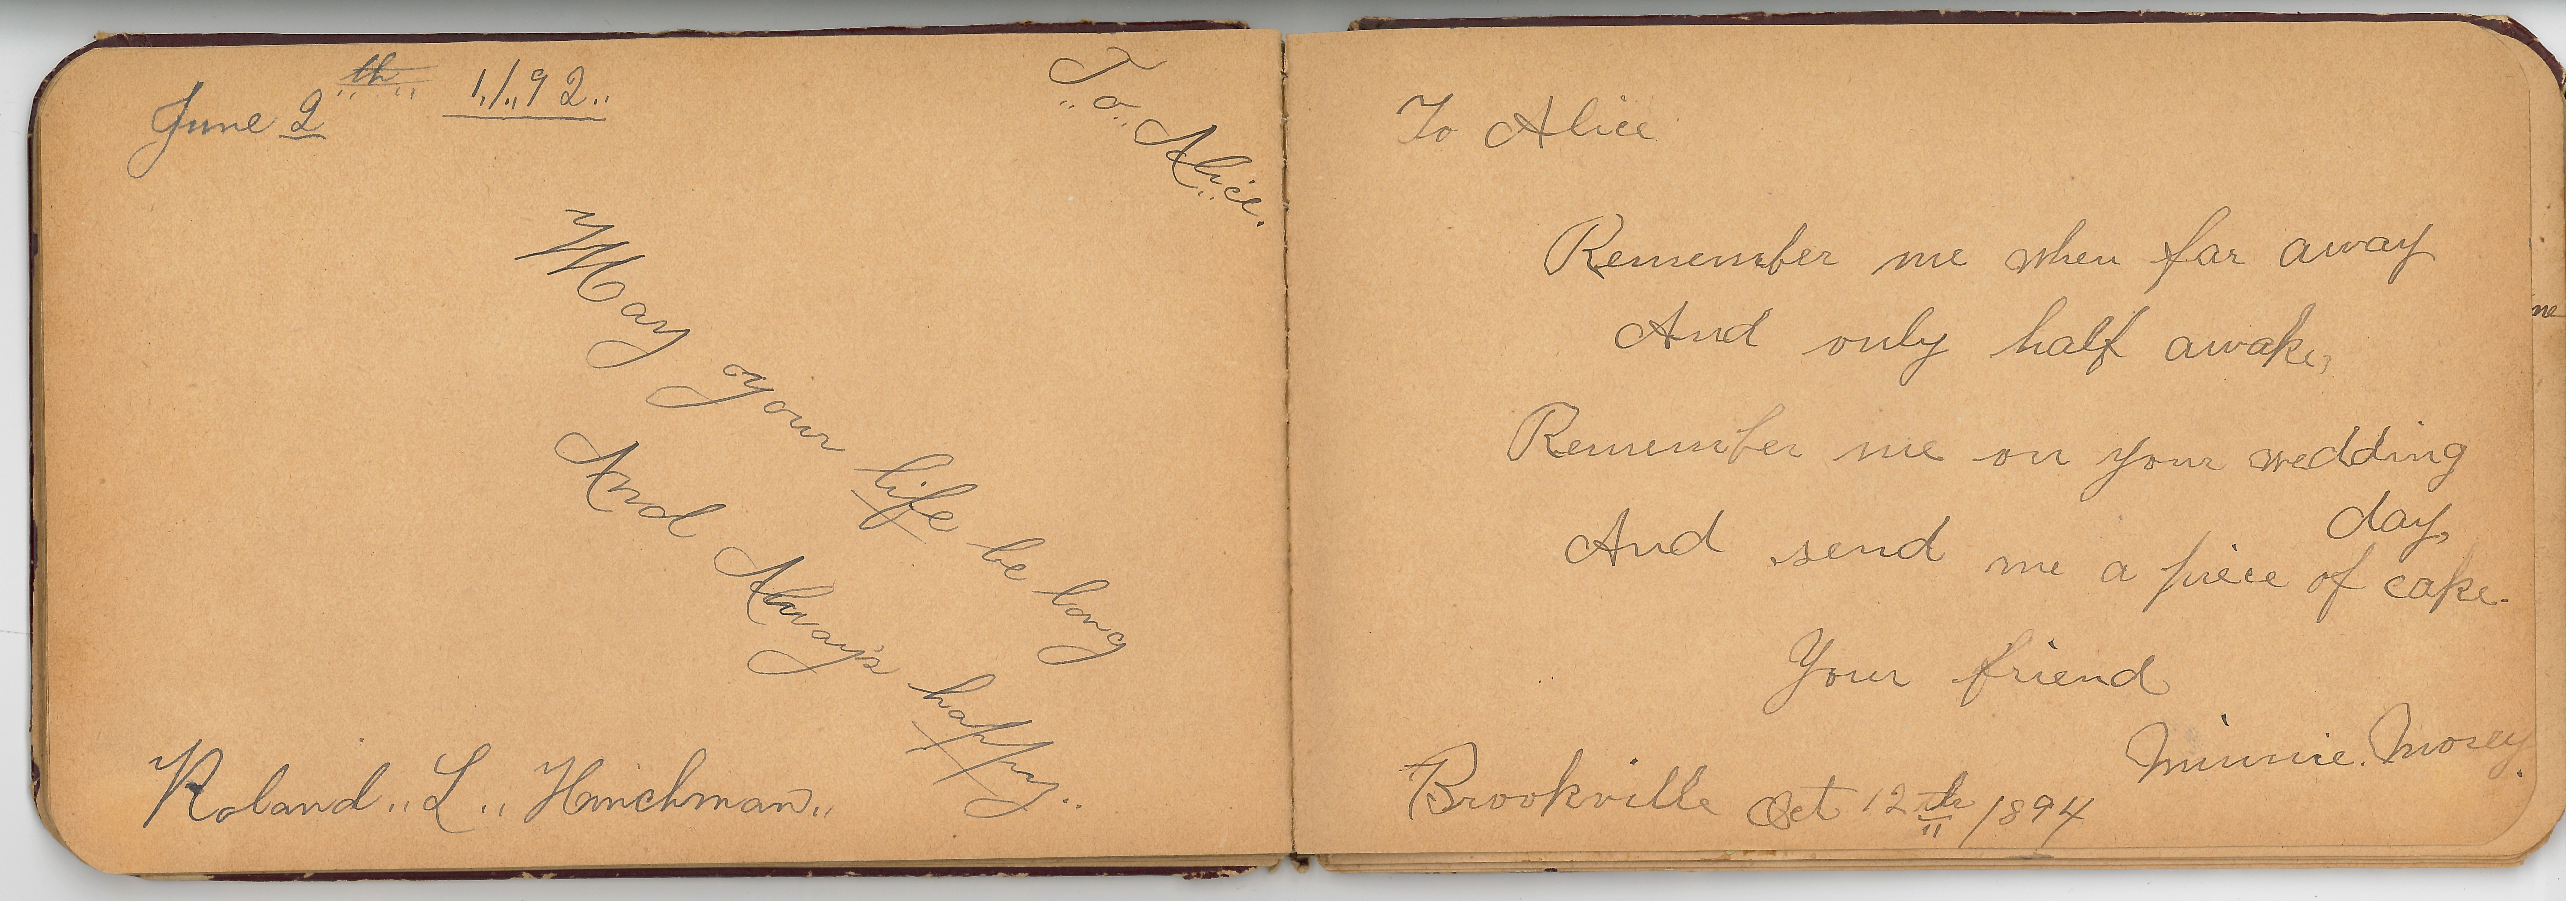 June 2th 1/92
To Alice.
May your life be long
And Always happy.
Roland L. Hinchman
To Alice
Remember me when far away
And only half awake,
Remember me on your wedding
day,
And send me a piece of cake.
Your friend
Minnie. Mosey.
Brookville Oct 12th 1894
me